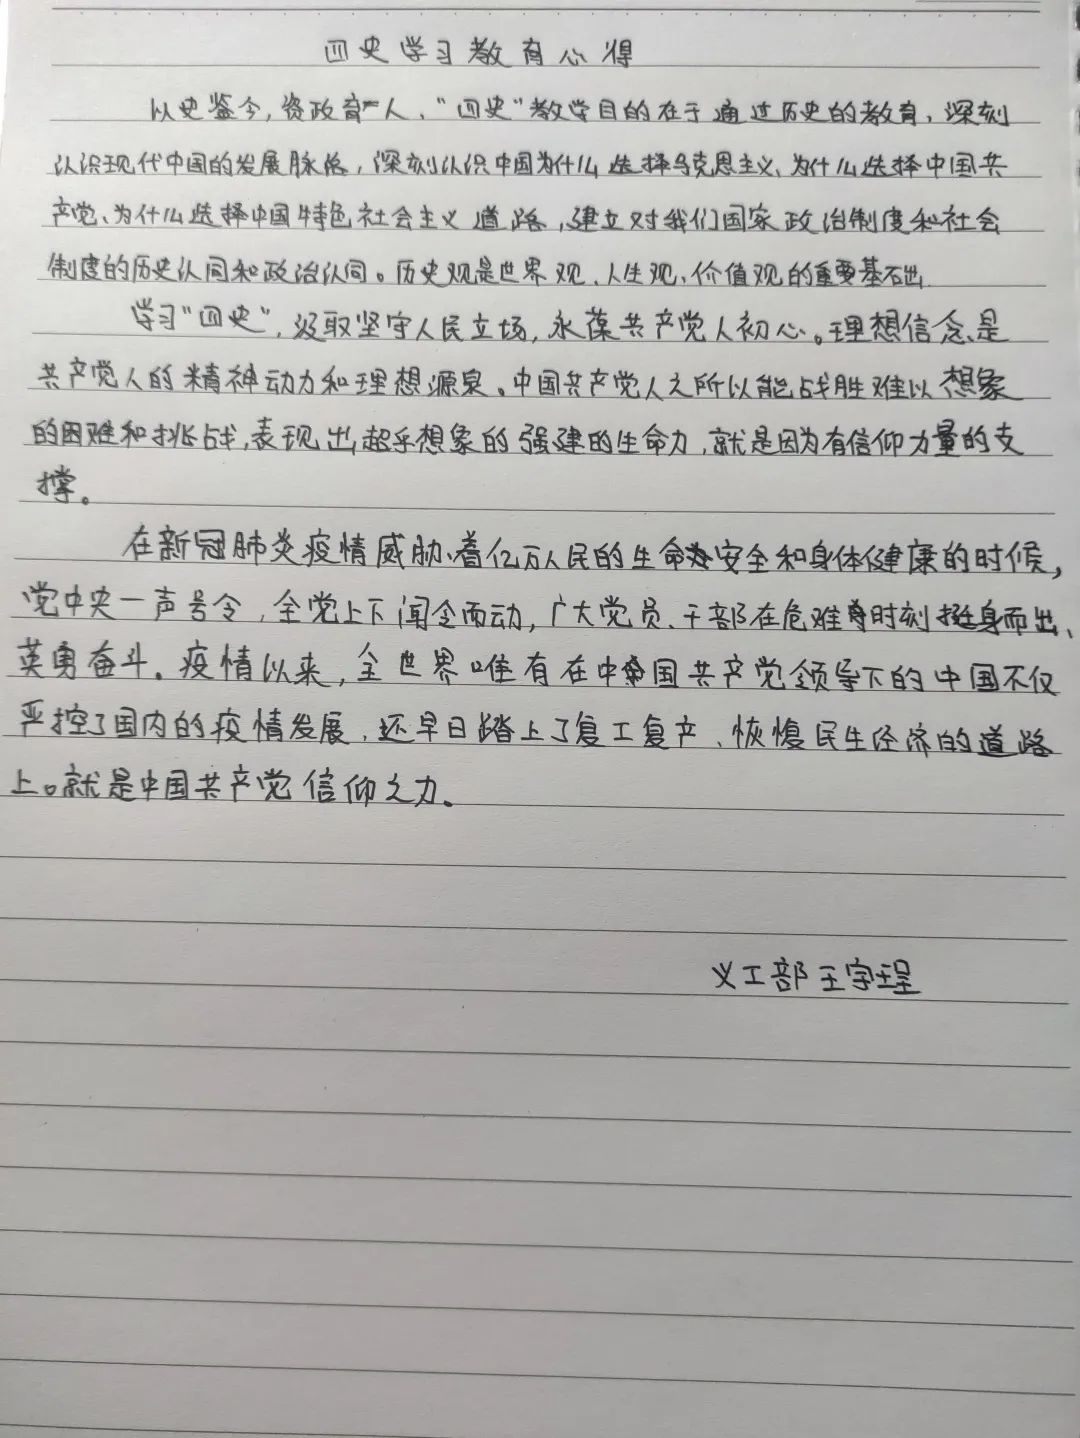 四史学习教育心得
以史鉴今，资政育人，“四史”教学目的在于通过历史的教育，深刻
认识现代中国的发展脉络，深刻认识中国为什么选择马克思主义、为什么选择中国共
产党、为什么选择中国特色社会主义道路，建立对我们国家政治制度和社会
制度的历史认同和政治认同。历史观是世界观、人生观、价值观的重要基础
学习“四史”，汲取坚守人民立场，永葆共产党人初心。理想信念是
共产党人的精神动力和理想源泉。中国共产党人之所以能战胜难以想象
的困难和挑战，表现出超乎想象的强建的生命力，就是因为有信仰力量的支
撑。
在新冠肺炎疫情威胁着亿万人民的生命安全和身体健康的时候，
党中央一声号令，全党上下闻令而动，广大党员、干部在危难时刻挺身而出、
英勇奋斗。疫情以来，全世界唯有在中国共产党领导下的中国不仅
严控了国内的疫情发展，还早日踏上了复工复产、恢愎民生经济的道路
上。就是中国共产党信仰之力。
义工部 王宇珵